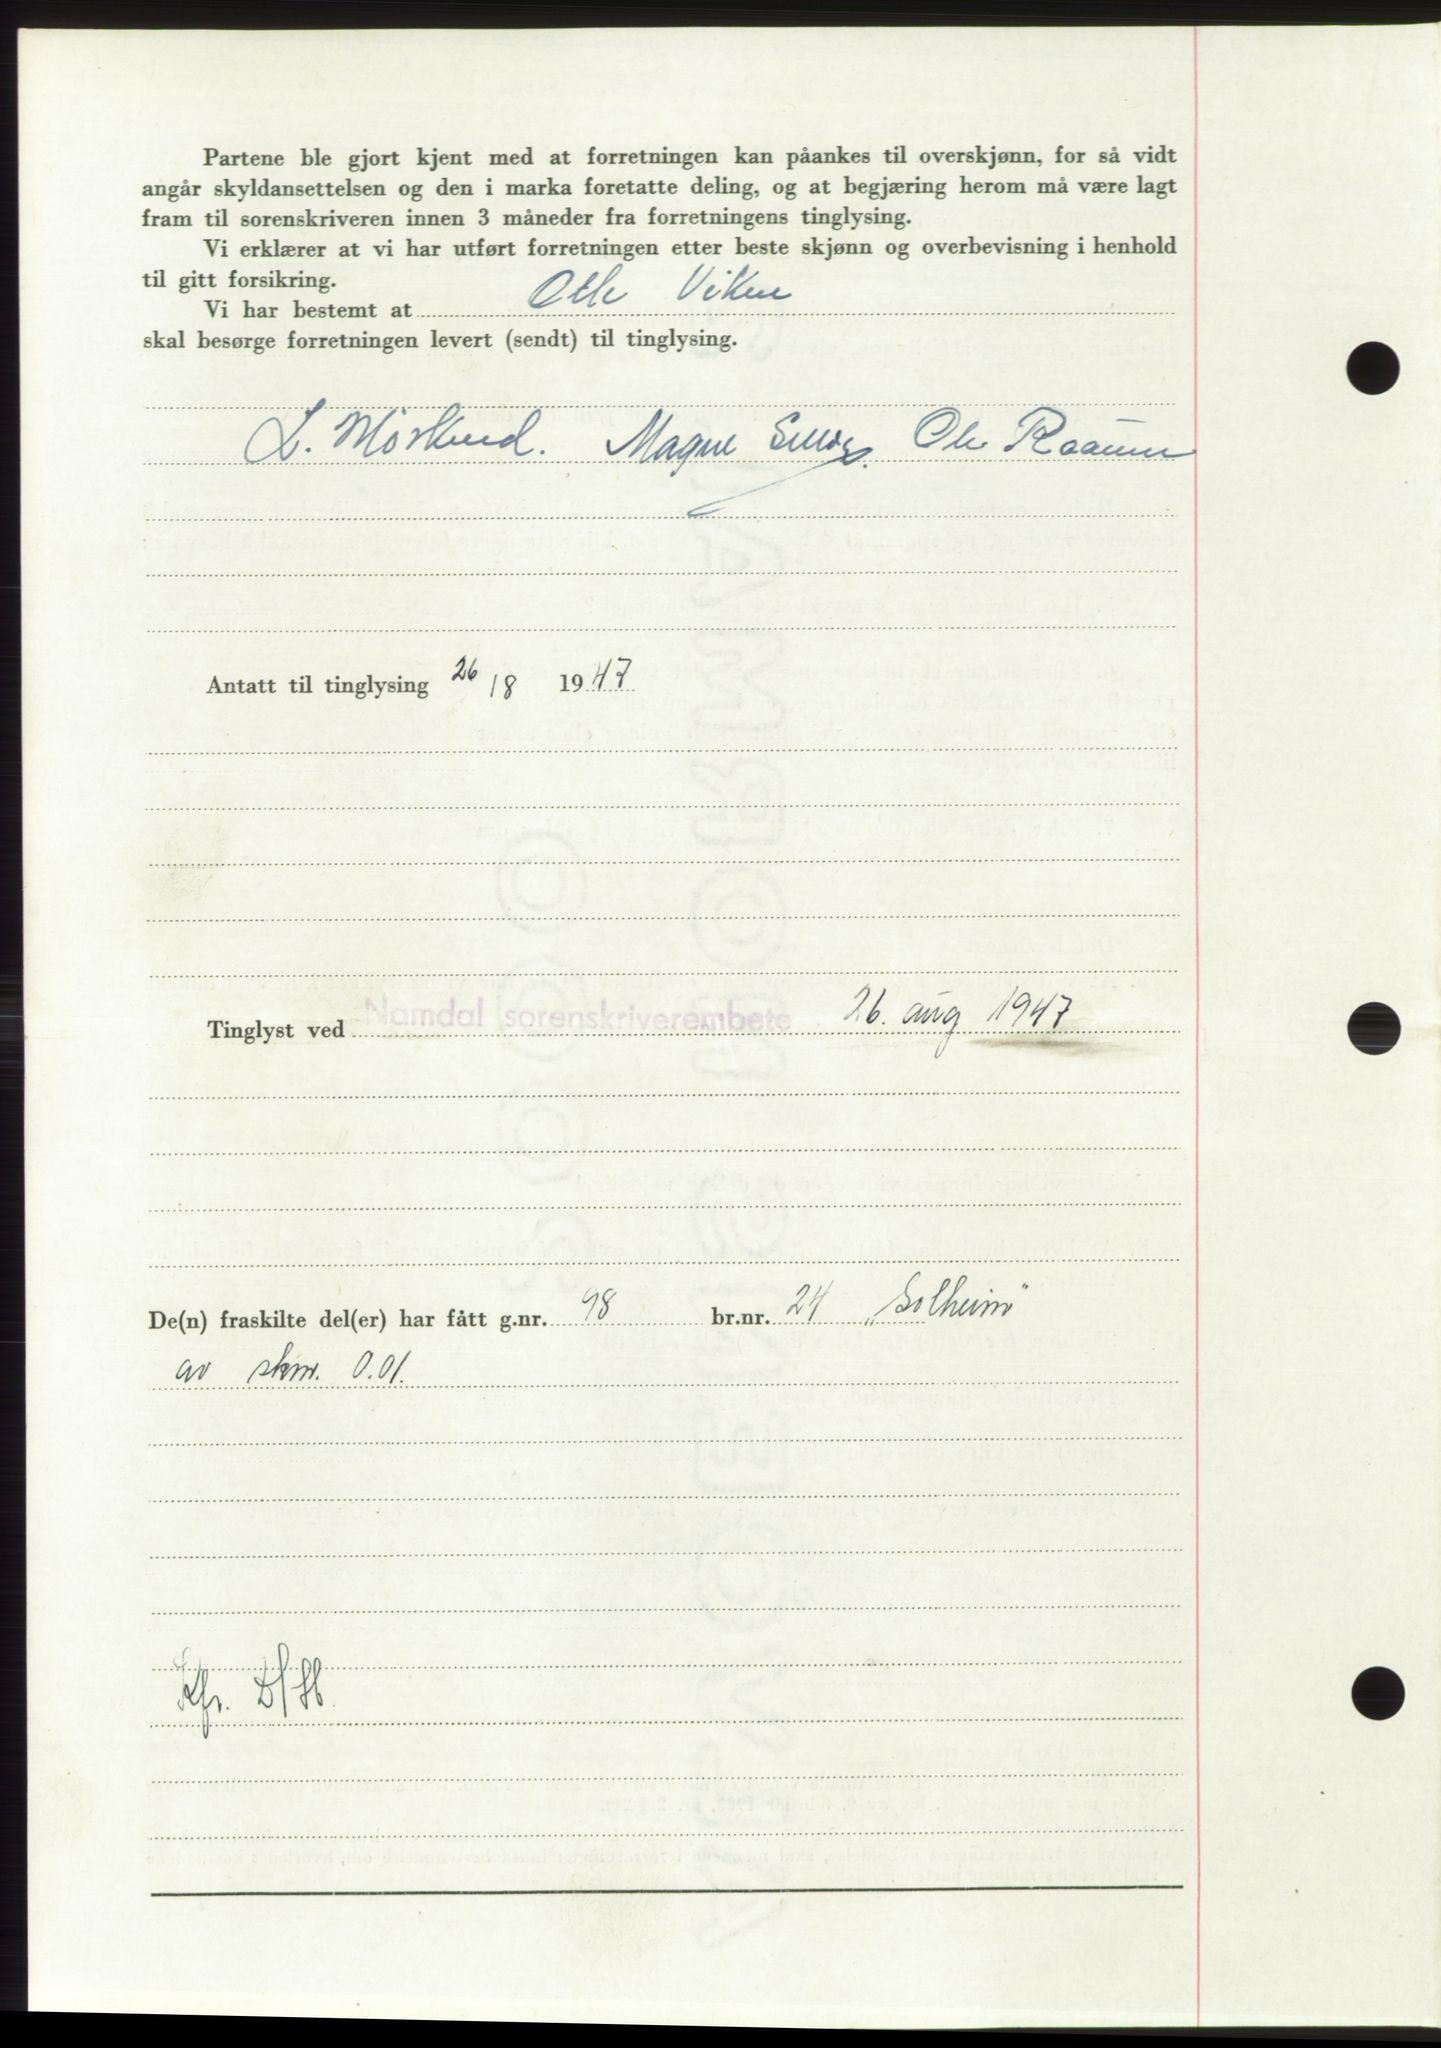 Partene ble gjort kjent med at forretningen kan påankes til overskjønn, for så vidt
angår skyldansettelsen og den i marka foretatte deling, og at begjæring herom må være lagt
fram til sorenskriveren innen 3 måneder fra forretningens tinglysing.
Vi erklærer at vi har utført forretningen etter beste skjønn og overbevisning i henhold
til gitt forsikring.
Vi har bestemt at Viken
skal besørge forretningen levert (sendt) til tinglysing.
L. Magne Ole
Antatt til tinglysing 26/8 1947
Tinglyst ved Namdal sorenskriverembete 26. aug 1947
De(n) fraskilte del(er) har fått g.nr. 98 br.nr. 24 „Solheim"
av skm. 0.01.
Kfr.